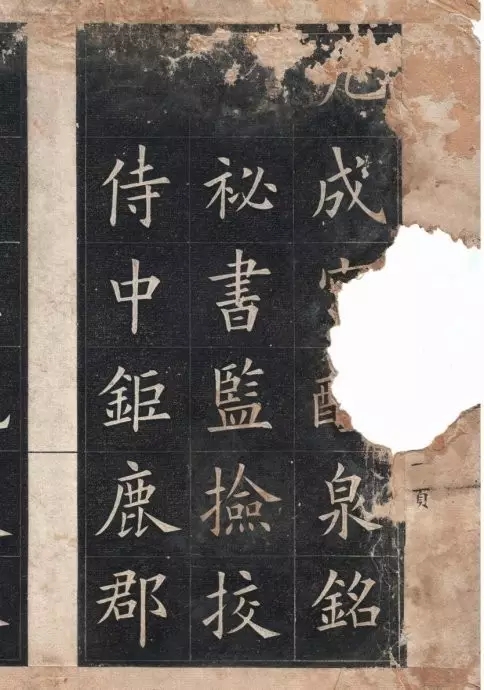 九成泉銘
祕書監撿挍
侍中鉅鹿郡
一頁